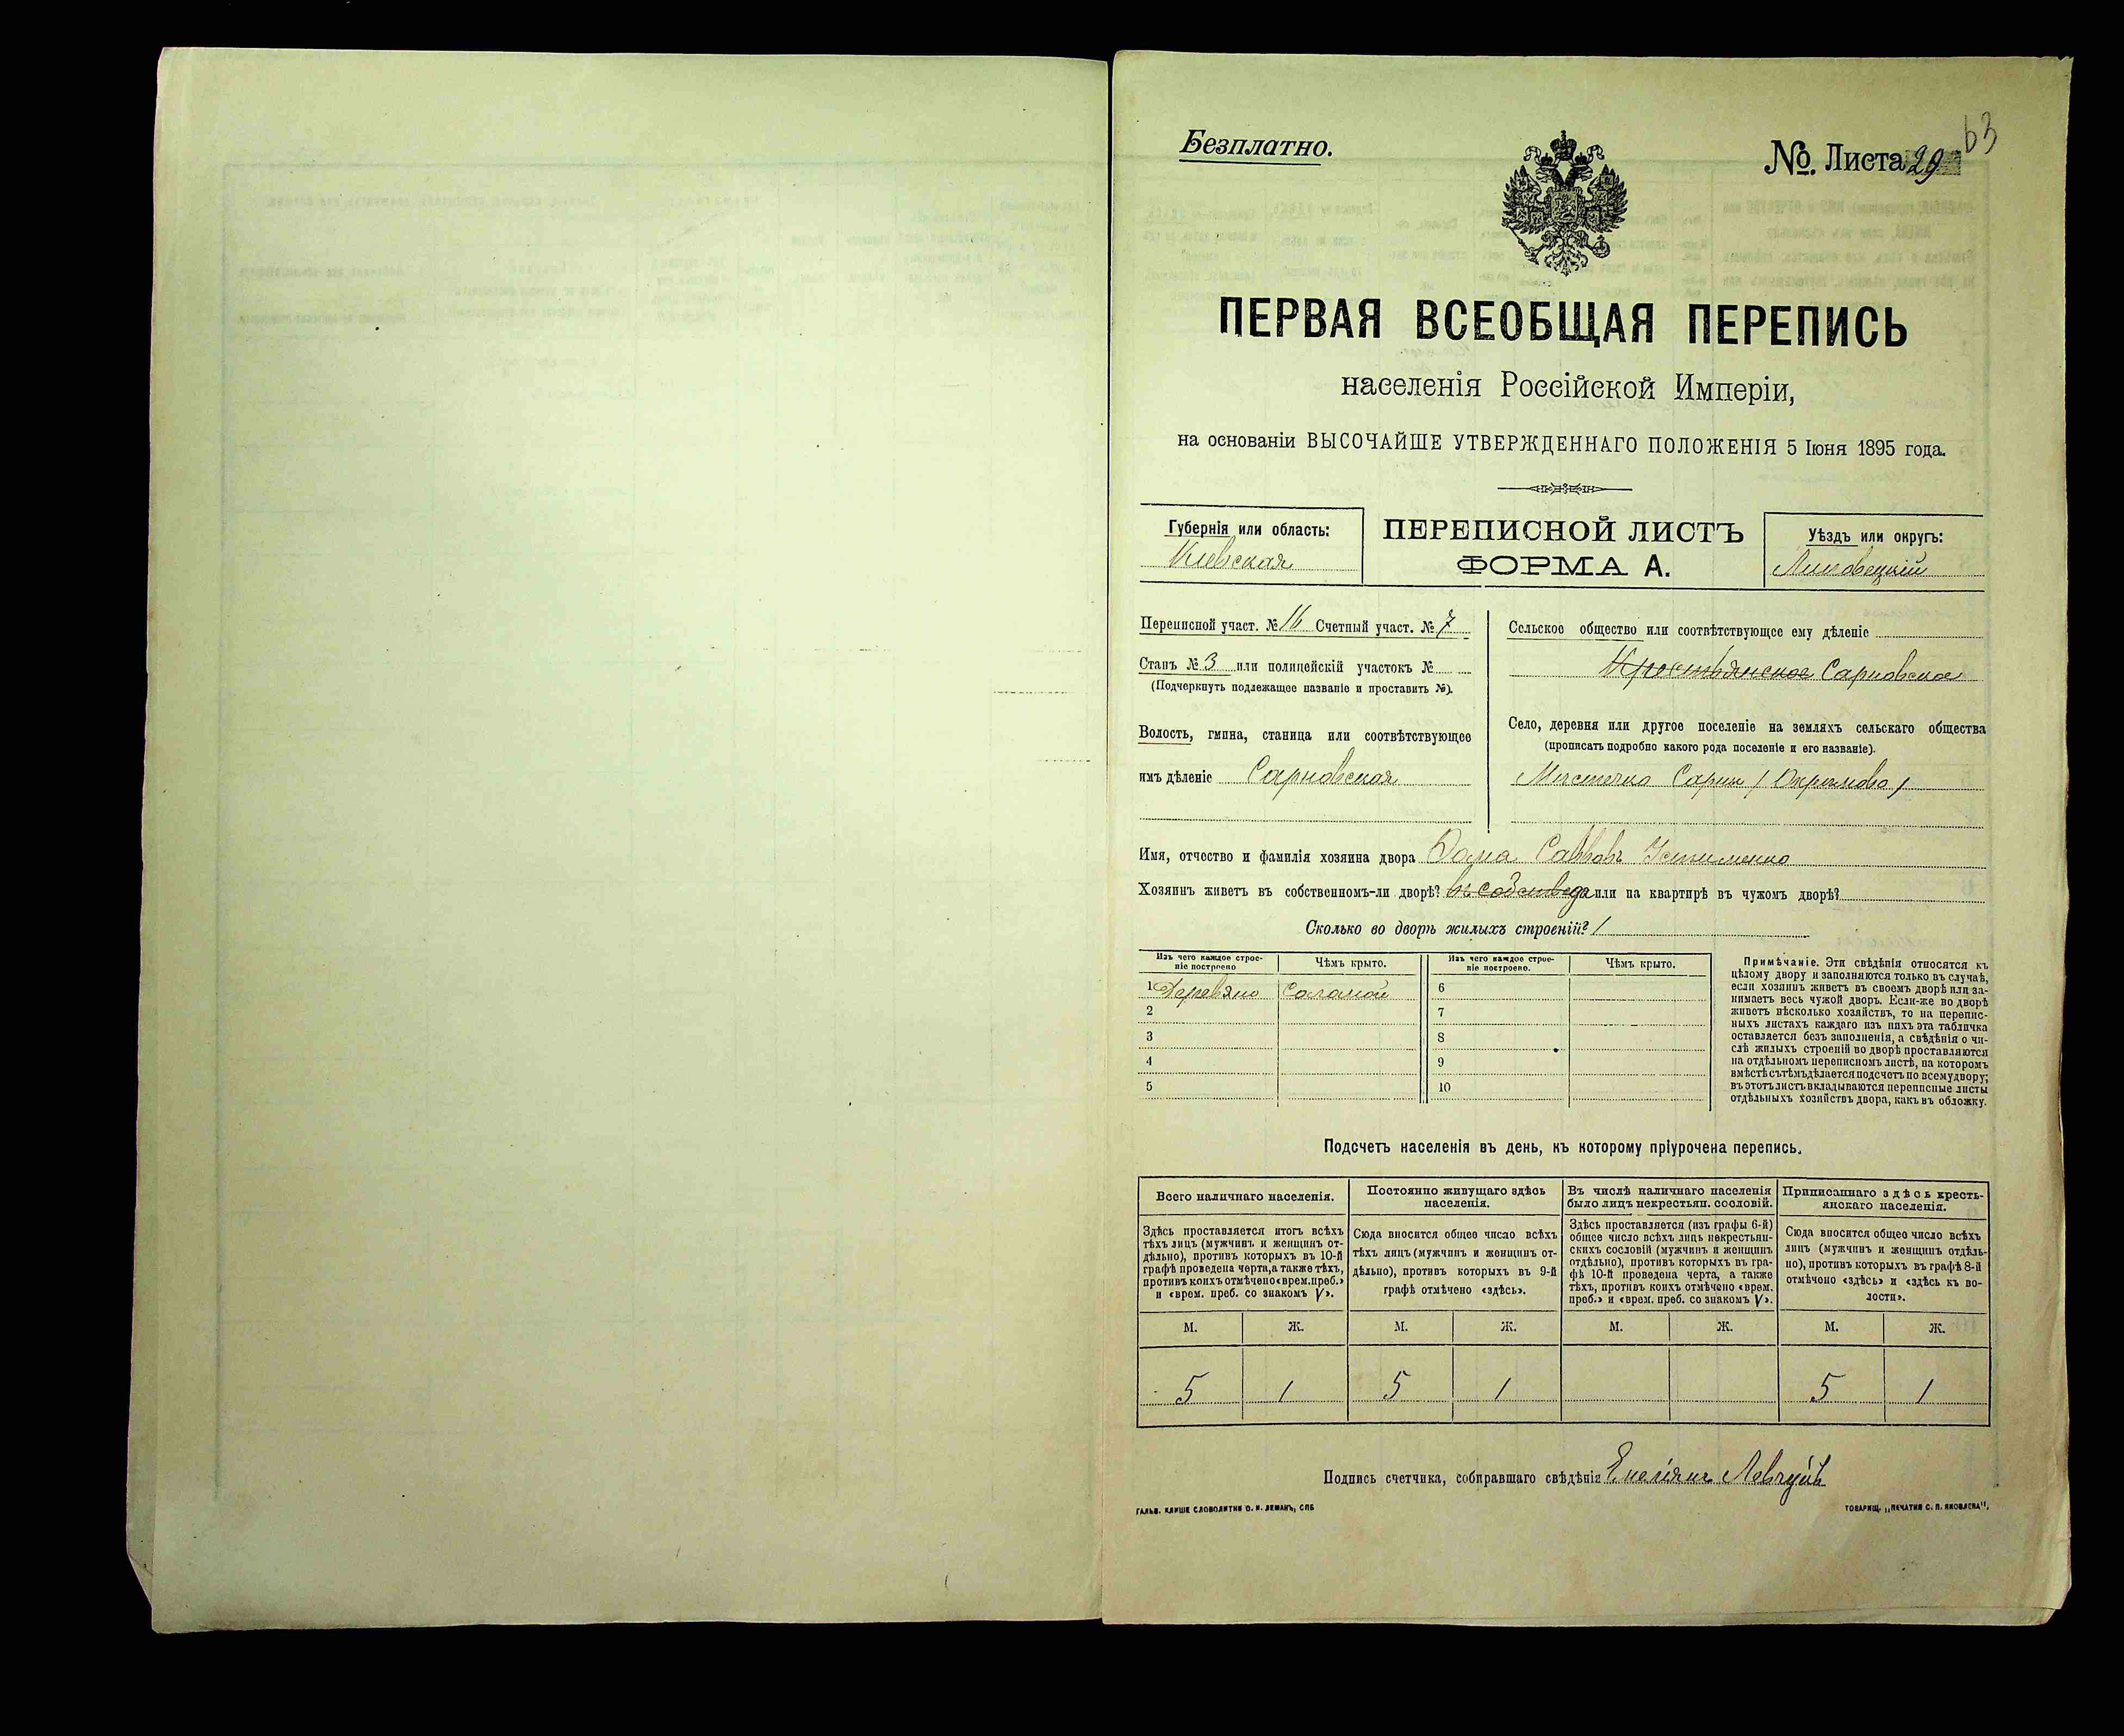 Безплатно.
№ Листа 29
63
ПЕРВАЯ ВСЕОБЩАЯ ПЕРЕПИСЬ
населенія Россійской Имперіи,
на основаніи ВЫСОЧАЙШЕ УТВЕРЖДЕННАГО ПОЛОЖЕНІЯ 5 Іюня 1895 года.
Губернія или область:
Кіевская
ПЕРЕПИСНОЙ ЛИСТЪ
ФОРМА А.
Уѣздъ или округъ:
Липовецкій
Переписной участ. № 16 Счетный участ. № 7
Станъ № 3 или полицейскій участокъ №
(Подчеркнуть подлежащее названіе и проставить №).
Волость, гмина, станица или соотвѣтствующее
имъ дѣленіе Сарновская
Сельское общество или соотвѣтствующее ему дѣленіе
Крестьянское Сарновское
Село, деревня или другое поселеніе на земляхъ сельскаго общества
(прописать подробно какого рода поселеніе и его названіе).
Мѣстечко Сарны
Имя, отчество и фамилія хозяина двора Фома Саввовъ Устименко
Хозяинъ живетъ въ собственномъ-ли дворѣ? или на квартирѣ въ чужомъ дворѣ?
Сколько во дворѣ жилыхъ строеній? 1
Изъ чего каждое строе-
ніе построено
Чѣмъ крыто.
Изъ чего каждое строе-
ніе построено.
Чѣмъ крыто.
1 Деревяно Соломой 6
2 7
3 8
4 9
5 10
Примѣчаніе. Эти свѣдѣнія относятся къ
цѣлому двору и заполняются только въ случаѣ,
если хозяинъ живетъ въ своемъ дворѣ или за-
нимаетъ весь чужой дворъ. Если-же во дворѣ
живетъ нѣсколько хозяйствъ, то на перепис-
ныхъ листахъ каждаго изъ нихъ эта табличка
оставляется безъ заполненія, а свѣдѣнія о чи-
слѣ жилыхъ строеній во дворѣ проставляются
на отдѣльномъ переписномъ листѣ, на которомъ
вмѣстѣ съ тѣмъ дѣлается подсчетъ по всему двору;
въ этотъ листъ вкладываются переписные листы
отдѣльныхъ хозяйствъ двора, какъ въ обложку.
Подсчетъ населенія въ день, къ которому пріурочена перепись.
Всего наличнаго населенія.
Здѣсь проставляется итогъ всѣхъ
тѣхъ лицъ (мужчинъ и женщинъ от-
дѣльно), противъ которыхъ въ 10-й
графѣ проведена черта, а также тѣхъ,
противъ коихъ отмѣчено «врем. преб.»
и «врем. преб. со знакомъ V».
Постоянно живущаго здѣсь
населенія.
Сюда вносится общее число всѣхъ
тѣхъ лицъ (мужчинъ и женщинъ от-
дѣльно), противъ которыхъ въ 9-й
графѣ отмѣчено «здѣсь».
Въ числѣ наличнаго населенія
было лицъ некрестьян. сословій.
Здѣсь проставляется (изъ графы 6-й)
общее число всѣхъ лицъ некрестьян-
скихъ сословій (мужчинъ и женщинъ
отдѣльно), противъ которыхъ въ гра-
фѣ 10-й проведена черта, а также
тѣхъ, противъ коихъ отмѣчено «врем.
преб.» и «врем. преб. со знакомъ V».
Приписаннаго здѣсь кресть-
янскаго населенія.
Сюда вносится общее число всѣхъ
лицъ (мужчинъ и женщинъ отдѣль-
но), противъ которыхъ въ графѣ 8-й
отмѣчено «здѣсь» и «здѣсь въ во-
лости».
М. Ж. М. Ж. М. Ж. М. Ж.
5 1 5 1 5 1
Подпись счетчика, собиравшаго свѣдѣнія
ГАЛЬВ. КЛИШЕ СЛОВОЛИТНИ О. И. ЛЕМАНЪ, СПБ
ТОВАРИЩ. „ПЕЧАТНЯ С. П. ЯКОВЛЕВА".